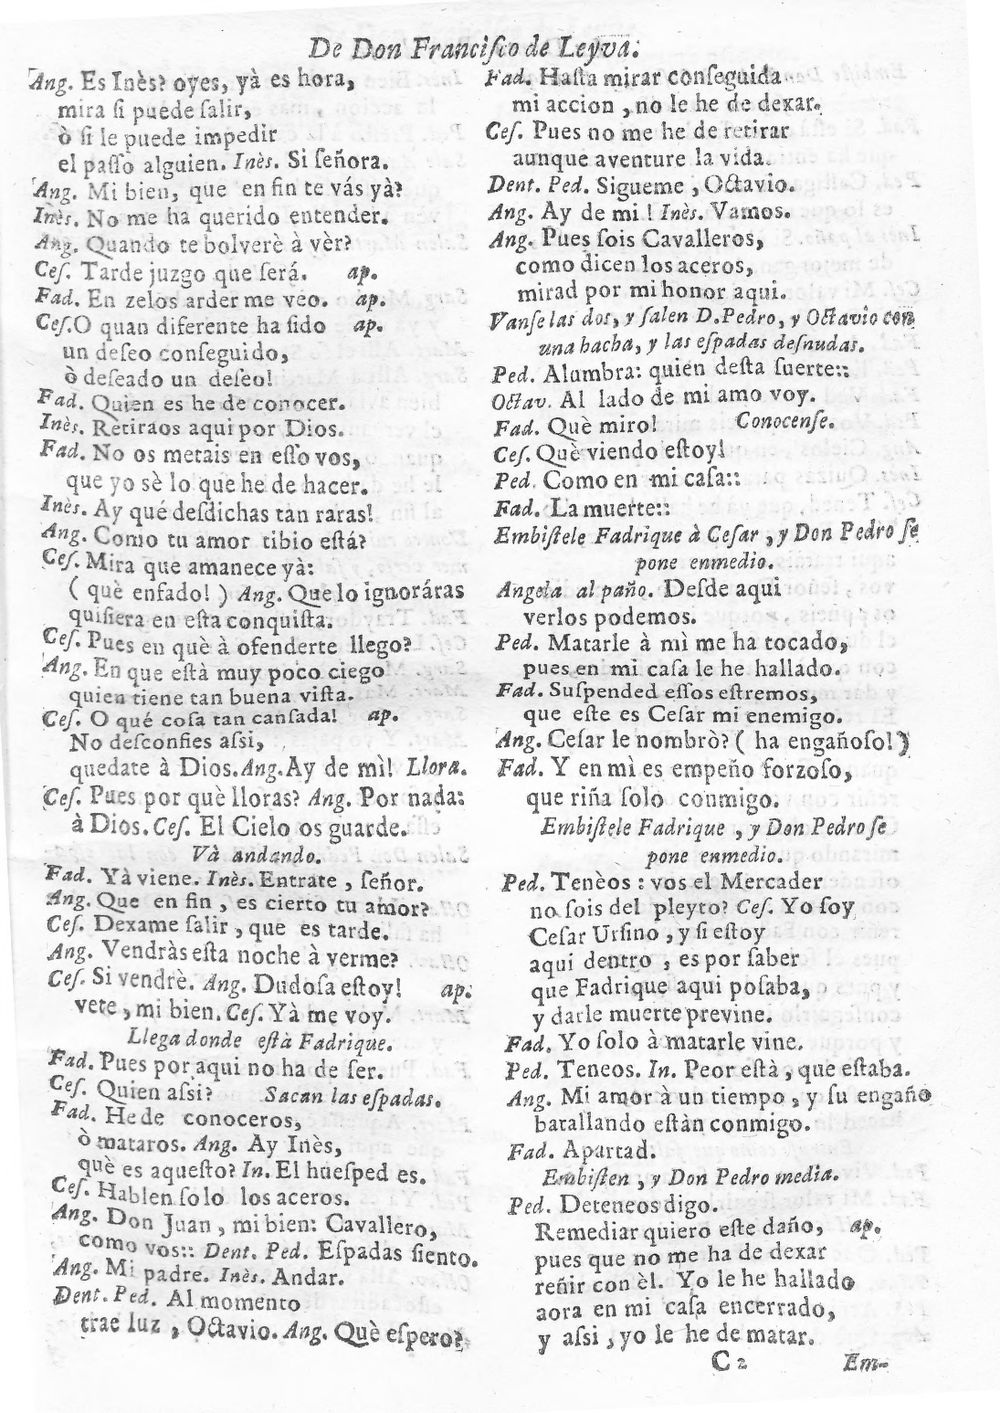 De Don Franciſco de Leyva.
Ang. Es Inès? oyes, yà es hora,
mira ſi puede ſalir,
ò ſi le puede impedir
el paſſo alguien. Inès. Si ſeñora.
Ang. Mi bien, que en fin te vás yà?
Inès. No me ha querido entender.
Ang. Quando te bolverè à vèr?
Ceſ. Tarde juzgo que ſerá. ap.
Fad. En zelos arder me veo. ap.
Ceſ. O quan diferente ha ſido ap.
un deſeo conſeguido,
ò deſeado un deſeo!
Fad. Quien es he de conocer.
Inès. Retiraos aqui por Dios.
Fad. No os metais en eſſo vos,
que yo sè lo que he de hacer.
Inès. Ay qué deſdichas tan raras!
Ang. Como tu amor tibio eſtá?
Ceſ. Mira que amanece yà:
( què enfado! ) Ang. Que lo ignoráras
quiſiera en eſta conquiſta.
Ceſ. Pues en què à ofenderte llego?
Ang. En que eſtà muy poco ciego
quien tiene tan buena viſta.
Ceſ. O qué coſa tan canſada! ap.
No deſconfies aſsi,
quedate à Dios. Ang. Ay de mì! Llora.
Ceſ. Pues por què lloras? Ang. Por nada:
à Dios. Ceſ. El Cielo os guarde.
Và andando.
Fad. Yà viene. Inès. Entrate, ſeñor.
Ang. Que en fin, es cierto tu amor?
Ceſ. Dexame ſalir, que es tarde.
Ang. Vendràs eſta noche à verme?
Ceſ. Si vendrè. Ang. Dudoſa eſtoy! ap.
vete, mi bien. Ceſ. Yà me voy.
Llega donde eſtà Fadrique.
Fad. Pues por aqui no ha de ſer.
Ceſ. Quien aſsi? Sacan las eſpadas.
Fad. He de conoceros,
ò mataros. Ang. Ay Inès,
què es aqueſto? In. El hueſped es.
Ceſ. Hablen ſolo los aceros.
Ang. Don Juan, mi bien: Cavallero,
como vos:: Dent. Ped. Eſpadas ſiento.
Ang. Mi padre. Inès. Andar.
Dent. Ped. Al momento
trae luz, Octavio. Ang. Què eſpero?
Fad. Haſta mirar conſeguida
mi accion, no le he de dexar.
Ceſ. Pues no me he de retirar
aunque aventure la vida.
Dent. Ped. Sigueme, Octavio.
Ang. Ay de mi! Inès. Vamos.
Ang. Pues ſois Cavalleros,
como dicen los aceros,
mirad por mi honor aqui.
Vanſe las dos, y ſalen D. Pedro, y Octavio con
una hacha, y las eſpadas deſnudas.
Ped. Alumbra: quien deſta ſuerte::
Octav. Al lado de mi amo voy.
Fad. Què miro! Conocenſe.
Ceſ. Què viendo eſtoy!
Ped. Como en mi caſa::
Fad. La muerte::
Embiſtele Fadrique à Ceſar, y Don Pedro ſe
pone enmedio.
Angela al paño. Deſde aqui
verlos podemos.
Ped. Matarle à mì me ha tocado,
pues en mi caſa le he hallado.
Fad. Suſpended eſſos eſtremos,
que eſte es Ceſar mi enemigo.
Ang. Ceſar le nombrò? ( ha engañoſo! )
Fad. Y en mì es empeño forzoſo,
que riña ſolo conmigo.
Embiſtele Fadrique, y Don Pedro ſe
pone enmedio.
Ped. Tenèos: vos el Mercader
no ſois del pleyto? Ceſ. Yo ſoy
Ceſar Urſino, y ſi eſtoy
aqui dentro, es por ſaber
que Fadrique aqui poſaba,
y darle muerte previne.
Fad. Yo ſolo à matarle vine.
Ped. Teneos. In. Peor eſtà, que eſtaba.
Ang. Mi amor à un tiempo, y ſu engaño
batallando eſtàn conmigo.
Fad. Apartad.
Embiſten, y Don Pedro media.
Ped. Deteneos digo.
Remediar quiero eſte daño, ap.
pues que no me ha de dexar
reñir con èl. Yo le he hallado
aora en mi caſa encerrado,
y aſsi, yo le he de matar.
C 2 Em-